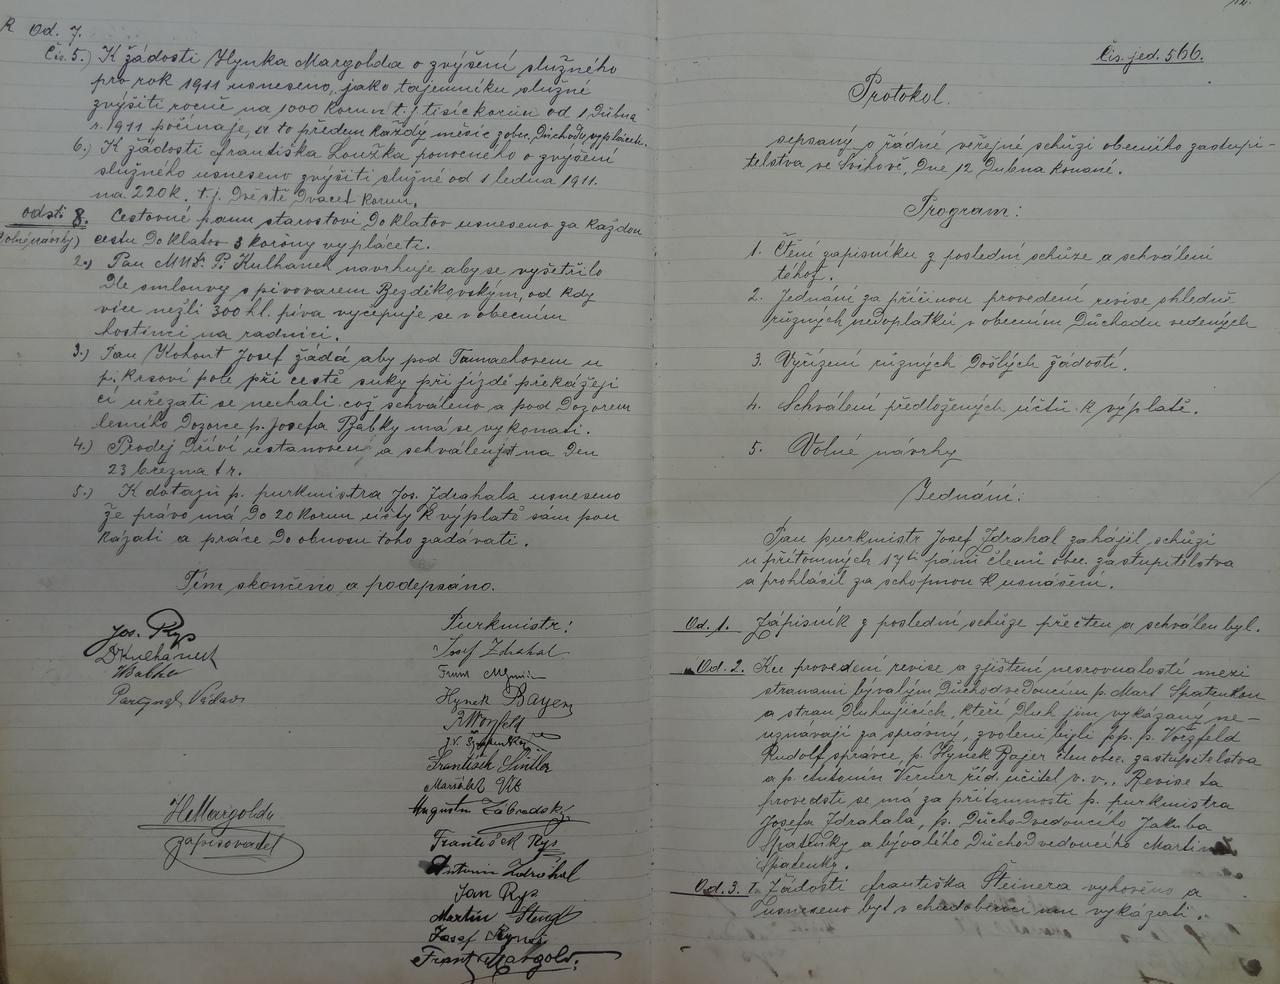 K Od. 7.
Čís. 5.) K žádosti Hynka Margolda o zvýšení služného
pro rok 1911 usneseno, jako tajemníku služné
zvýšiti ročně na 1000 korun t.j. tisíc korun od 1 Dubna
r. 1911 počínaje, a to předem každý měsíc z obec. Důchodu vypláceti.
6.) K žádosti Františka Loužka ponocného o zvýšení
služného usneseno zvýšiti služné od 1 ledna 1911.
na 220 K. t.j. Dvě stě Dvacet Korun.
odsti 8. Cestovné panu starostovi Do Klatov usneseno za každou
(Volné návrhy) cestu Do Klatov 3 koróny vypláceti.
2.) Pan MUDr. P. Kulhánek navrhuje aby se vyšetřilo
Dle smlouvy s pivovarem Bezděkovským, od kdy
více nežli 300 hl. piva vyčepuje se v obecním
hostinci na radnici.
3.) Pan Kohout Josef žádá aby pod Tannachovem u
p. Krsovi pole při cestě suky při jízdě překážejí
cí uřezati se nechali což schváleno a pod Dozorem
lesního Dozorce p. Josefa Babky má se vykonati.
4.) Prodej Dříví ustanovený a schválen jest na Den
23 března t r.
5.) K dotazu p. purkmistra Jos. Zdrahala usneseno
že právo má Do 20 Korun účty k výplatě sám pou
kázati a práce Do obnosu toho zadávati.
Tím skončeno a podepsáno.
Jos. Rys
Dr Kulhánek
Babka
Parýzek Václav
HMargold
zapisovatel
Purkmistr:
Josef Zdrahal
Frant.
Hynek Bayer
R Voržfeld
J.V.
František
Maršálek Vít
Augustin Zábradský
František Rys
Antonín Zdráhal
Jan Rys
Martin
Josef
Frant. Margold.
Čís. jed. 566.
Protokol.
sepsaný o řádné veřejné schůzi obecního zastupi-
telstva ve Švihově, Dne 12 Dubna konané.
Program:
1. Čtění zápisníku z poslední schůze a schválení
téhož.
2. Jednání za příčinou provedení revise ohledně
různých nedoplatků v obecním Důchodu vedených
3. Vyřízení různých Došlých žádostí.
4. Schválení předložených účtů k výplatě.
5. Volné návrhy
Jednání:
Pan purkmistr Josef Zdrahal zahájil schůzi
u přítomných 17ti pánů členů obec. zastupitelstva
a prohlásil za schopnou k usnášení.
Od. 1. Zápisník z poslední schůze přečten a schválen byl.
Od. 2. Ku provedení revise a zjištění nesrovnalostí mezi
stranami bývalým Důchodvedoucím p. Mart Špatenkou
a stran Dluhujících, kteří Dluh jim vykázaný ne-
uznávají za správný, zvoleni byli pp. p. Voržfeld
Rudolf správce, p. Hynek Bajer člen obec. zastupitelstva
a p. Antonín Verner říd. učitel v. v., Revise ta
provedsti se má za přítomnosti p. purkmistra
Josefa Zdrahala, p. Důchodvedoucího Jakuba
Špatenky a bývalého Důchodvedoucího Martina
Špatenky.
Od. 3. 1. Žádosti Františka Šteinera vyhověno a
usneseno byt v chudobenci mu vykázati.